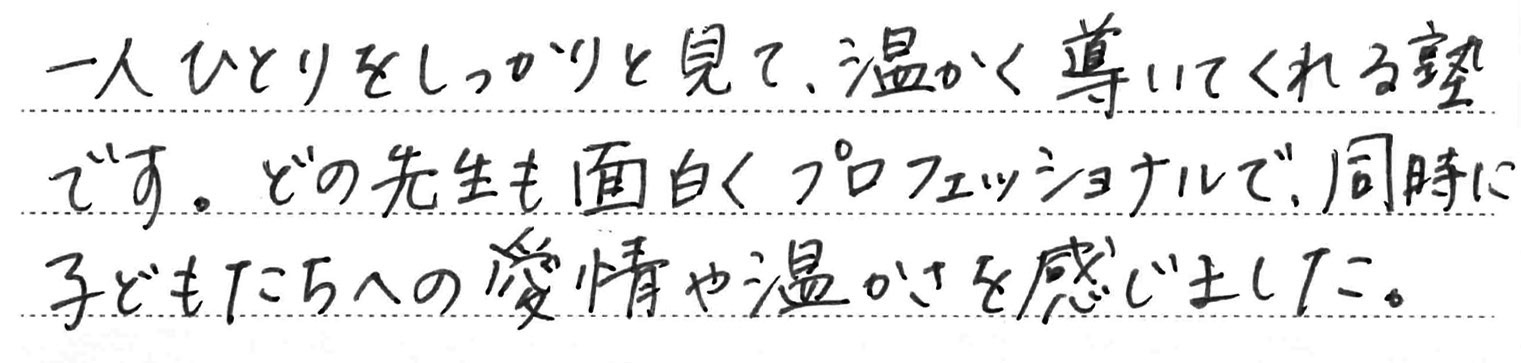 一人ひとりをしっかりと見て、温かく導いてくれる塾
です。どの先生も面白くプロフェッショナルで、同時に
子どもたちへの愛情や温かさを感じました。